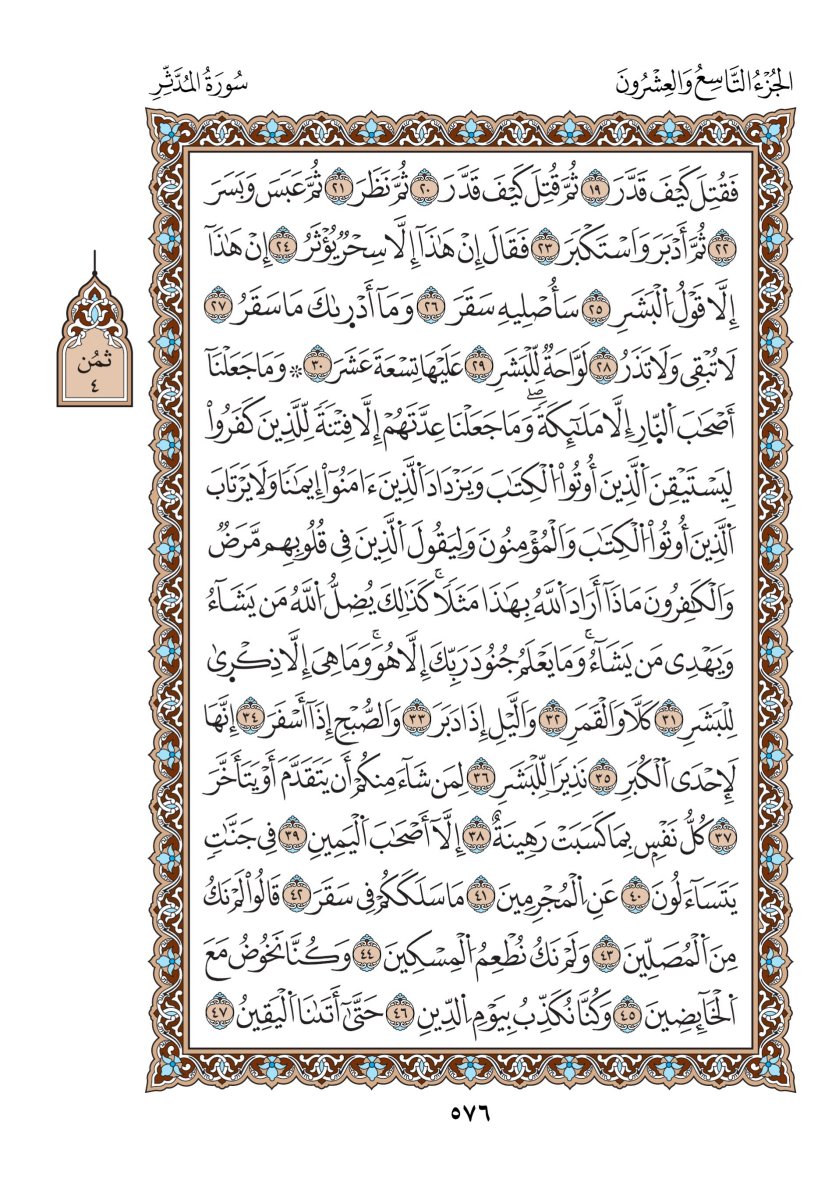 الجُزْءُ التَّاسِعُ وَالعِشْرُونَ
سُورَةُ المُدَّثِّرِ
فَقُتِلَ كَيْفَ قَدَّرَ ١٩ ثُمَّ قُتِلَ كَيْفَ قَدَّرَ ٢٠ ثُمَّ نَظَرَ ٢١ ثُمَّ عَبَسَ وَبَسَرَ
٢٢ ثُمَّ أَدْبَرَ وَاَسْتَكْبَرَ ٢٣ فَقَالَ إِنْ هَٰذَآ إِلَّا سِحْرٌ يُؤْثَرُ ٢٤ إِنْ هَٰذَآ
إِلَّا قَوْلُ اُلْبَشَرِ ٢٥ سَأُصْلِيهِ سَقَرَ ٢٦ وَمَآ أَدْرىٰكَ مَا سَقَرُ ٢٧
لَا تُبْقِى وَلَا تَذَرُ ٢٨ لَوَّاحَةٌ لِّلْبَشَرِ ٢٩ عَلَيْهَا تِسْعَةَ عَشَرَ ٣٠ ۞ وَمَا جَعَلْنَآ
ثمُن
٤
أَصْحَٰبَ اَلنّارِ إِلَّا مَلَٰٓئِكَةً ۖ وَمَا جَعَلْنَا عِدَّتَهُمْ إِلَّا فِتْنَةً لِّلَّذِينَ كَفَرُواْ
لِيَسْتَيْقِنَ اَلَّذِينَ أُوتُواْ اُلْكِتَٰبَ وَيَزْدَادَ اَلَّذِينَ ءَامَنُوٓاْ إِيمَٰنًا وَلَا يَرْتَابَ
اَلَّذِينَ أُوتُواْ اُلْكِتَٰبَ وَالْمُؤْمِنُونَ وَلِيَقُولَ اَلَّذِينَ فِى قُلُوبِهِم مَّرَضٌ
وَالْكَٰفِرُونَ مَاذَآ أَرَادَ اَللَّهُ بِهَٰذَا مَثَلًا ۚ كَذَٰلِكَ يُضِلُّ اُللَّهُ مَن يَشَآءُ
وَيَهْدِى مَن يَشَآءُ ۚ وَمَا يَعْلَمُ جُنُودَ رَبِّكَ إِلَّا هُوَ ۚ وَمَا هِىَ إِلَّا ذِكْرىٰ
لِلْبَشَرِ ٣١ كَلَّا وَالْقَمَرِ ٣٢ وَالَّيْلِ إِذَا دَبَرَ ٣٣ وَالصُّبْحِ إِذَآ أَسْفَرَ ٣٤ إِنَّهَا
لَإِحْدَى اَلْكُبَرِ ٣٥ نَذِيرًا لِّلْبَشَرِ ٣٦ لِمَن شَآءَ مِنكُمْ أَن يَتَقَدَّمَ أَوْ يَتَأَخَّرَ
٣٧ كُلُّ نَفْسٍ بِمَا كَسَبَتْ رَهِينَةٌ ٣٨ إِلَّآ أَصْحَٰبَ اَلْيَمِينِ ٣٩ فِى جَنَّٰتٍ
يَتَسَآءَلُونَ ٤٠ عَنِ اِلْمُجْرِمِينَ ٤١ مَا سَلَكَكُمْ فِى سَقَرَ ٤٢ قَالُواْ لَمْ نَكُ
مِنَ اَلْمُصَلِّينَ ٤٣ وَلَمْ نَكُ نُطْعِمُ اُلْمِسْكِينَ ٤٤ وَكُنَّا نَخُوضُ مَعَ
اَلْخَآئِضِينَ ٤٥ وَكُنَّا نُكَذِّبُ بِيَوْمِ اِلدِّينِ ٤٦ حَتَّىٰٓ أَتَىٰنَا اَلْيَقِينُ ٤٧
٥٧٦